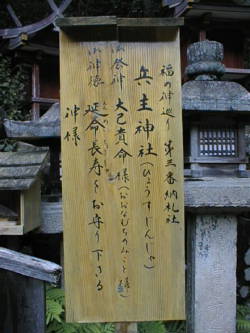 福の神巡り 第三番納札社
兵主神社(ひょうすじんじゃ)
御祭神 大己貴命様(おおなむちのみこと様)
御神徳 延命長寿をお守り下さる
神様